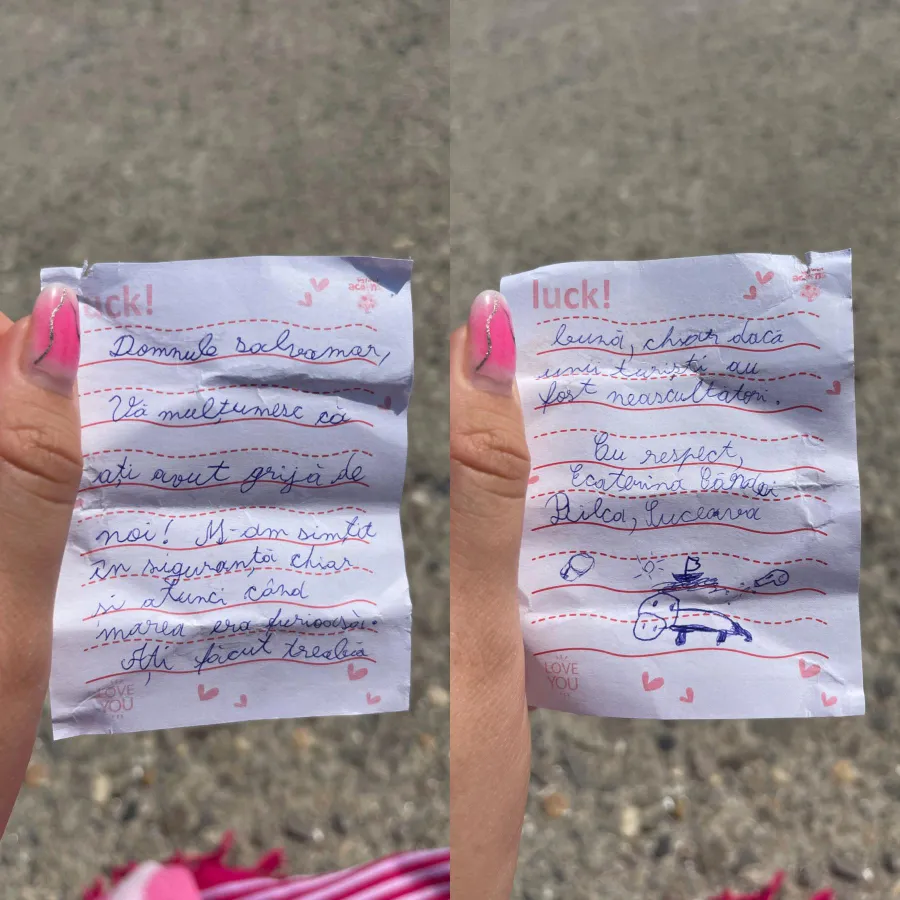 uck!
Domnule salvamar,
Vă mulțumesc că
ați avut grijă de
noi! M-am simțit
în siguranță chiar
și atunci când
marea era furioasă.
Ați făcut treabă
LOVE
YOU
luck!
bună, chiar dacă
unii turiști au
fost neascultători.
Cu respect,
Ecaterina
Bilca, Suceava
LOVE
YOU